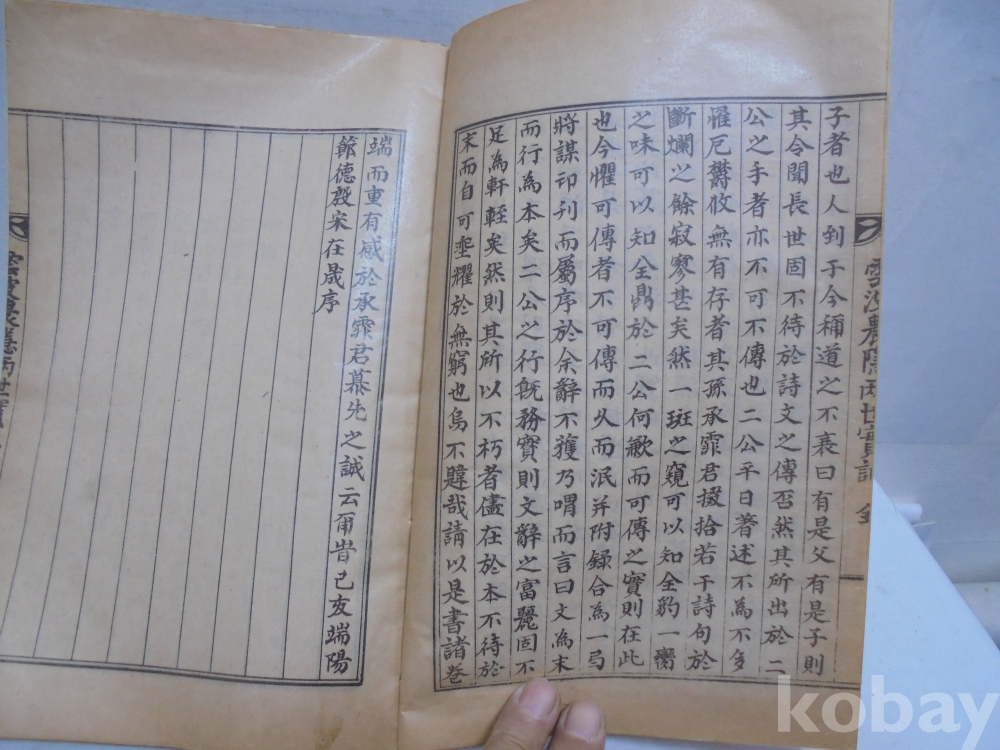 子者也人到于今稱道之不衰曰有是父有是子則
其令聞長世固不待於詩文之傳否然其所出於二
公之手者亦不可不傳也二公平日著述不爲不多
罹厄欝攸無有存者其孫承霏君掇拾若干詩句於
斷爛之餘寂寥甚矣然一斑之窺可以知全豹一臠
之味可以知全鼎於二公何歉而可傳之實則在此
也今懼可傳者不可傳而久而泯并附錄合爲一局
將謀印刊而屬序於余辭不獲乃喟而言曰文爲末
而行爲本矣二公之行旣務實則文辭之富麗固不
足爲軒輊矣然則其所以不朽者儘在於本不待於
末而自可垂耀於無窮也烏不韙哉請以是書諸卷
雲沙農隱兩世實記 全
端而重有感於承霏君慕先之誠云爾旹己亥端陽
節德殷宋在晟序
農隱兩世實
kobay